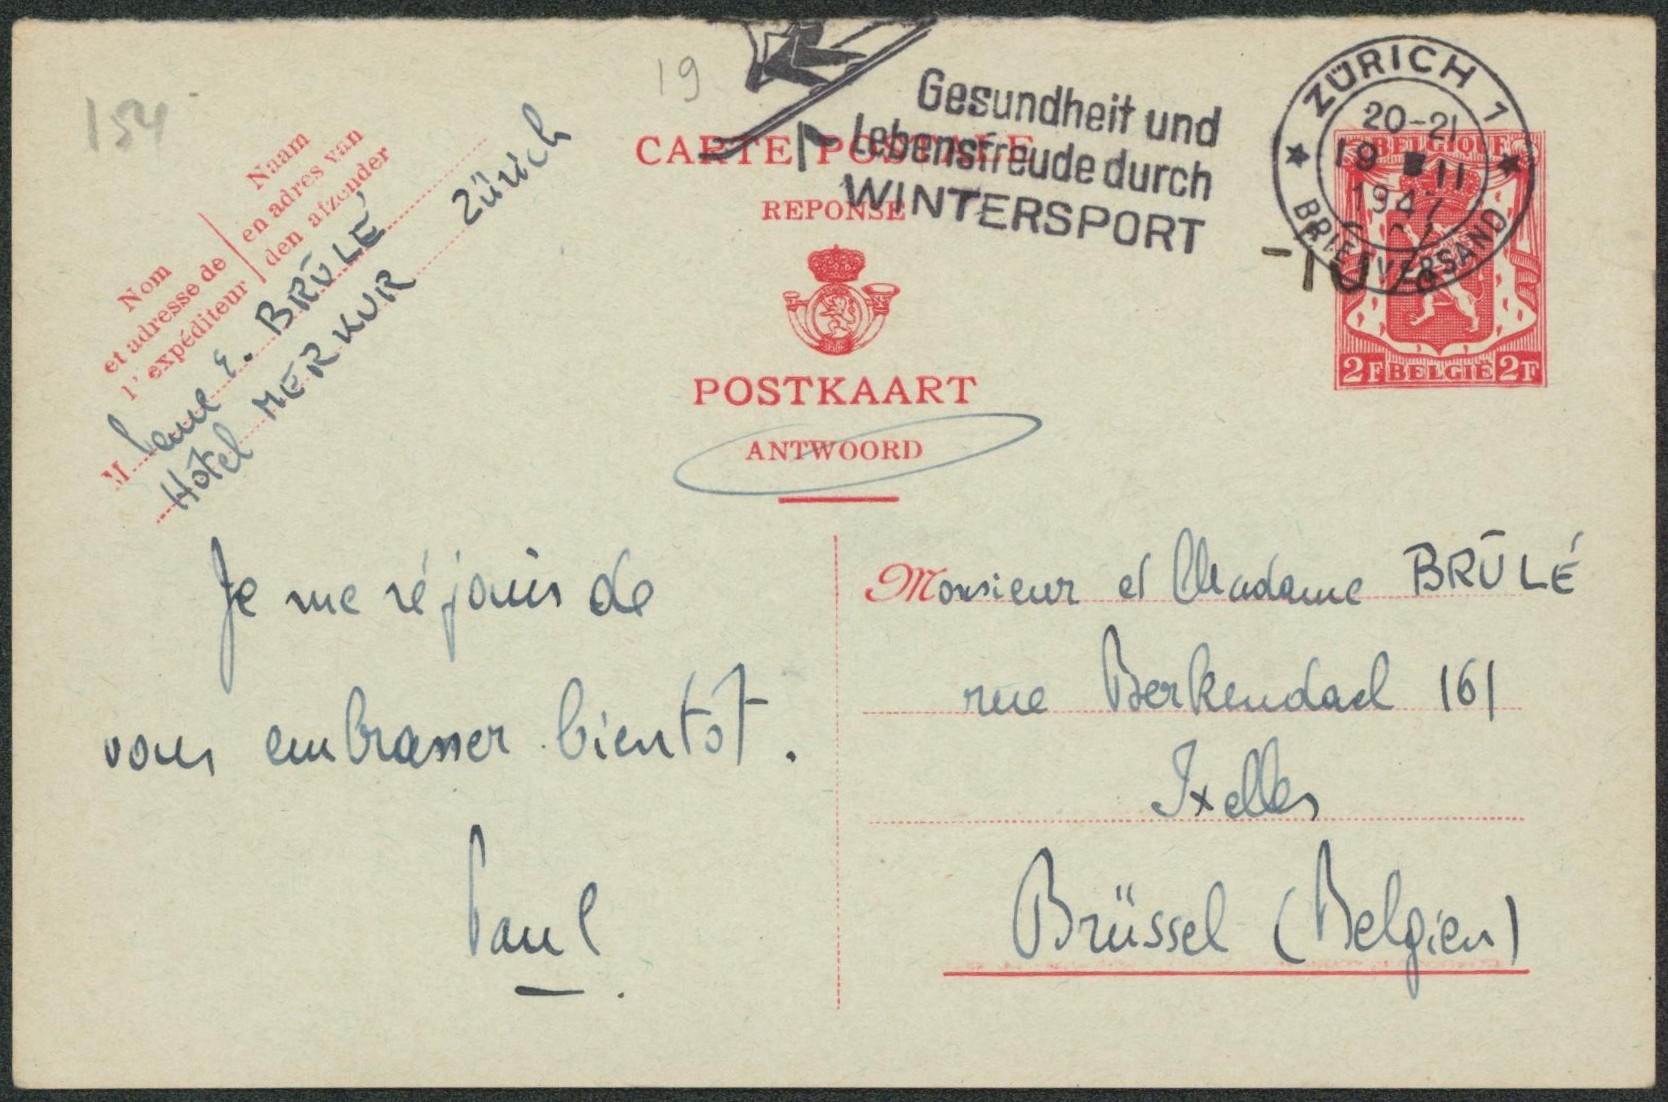 154
19
Gesundheit und
Lebensfreude durch
WINTERSPORT
ZÜRICH 1
20-21
19 II
1947
BRIEFVERSAND
Nom
et adresse de
l'expéditeur
Naam
en adres van
den afzender
M E. BRŪLÉ
Hôtel MERKUR Zürich
CARTE POSTALE
REPONSE
POSTKAART
ANTWOORD
BELGIQUE
2F BELGIË 2F
Je me réjouis de
vous embrasser bientôt.
Paul
Monsieur et Madame BRŪLÉ
rue Berkendael 161
Ixelles
Brüssel (Belgien)